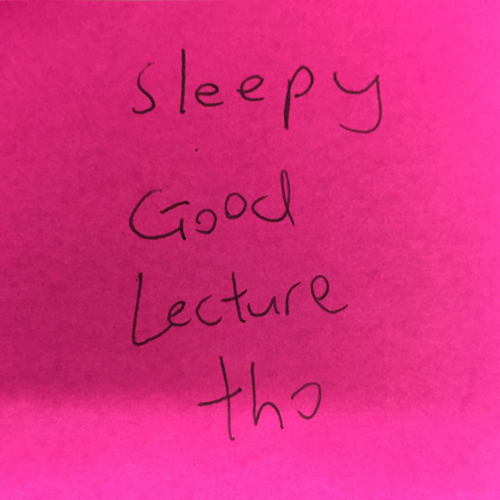 Sleepy
Good
Lecture
tho